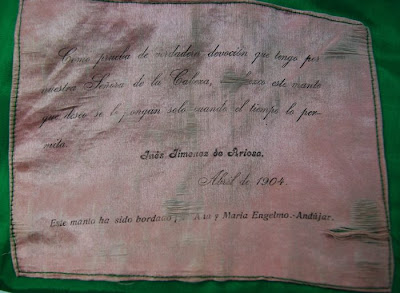 Como prueba de verdadera devoción que tengo por
nuestra Señora de la Cabeza, ofrezco este manto
que deseo se le pongan solo cuando el tiempo lo per-
mita.
Inés Jimenez de Arioza.
Abril de 1904.
Este manto ha sido bordado por Ana y Maria Engelmo.-Andújar.